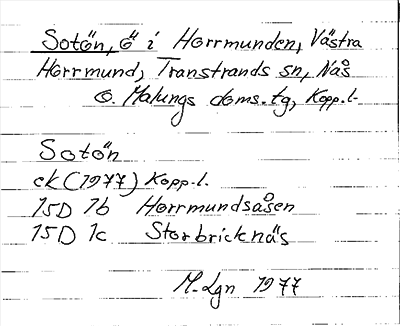 Sotön, ö i Horrmunden, Västra
Horrmund, Transtrands sn, Nås
o. Malungs doms.tg, Kopp.l.
Sotön
ek (1977) Kopp.l.
15D 1b Horrmundsåsen
15D 1c Storbricknäs
M.Lgn 1977